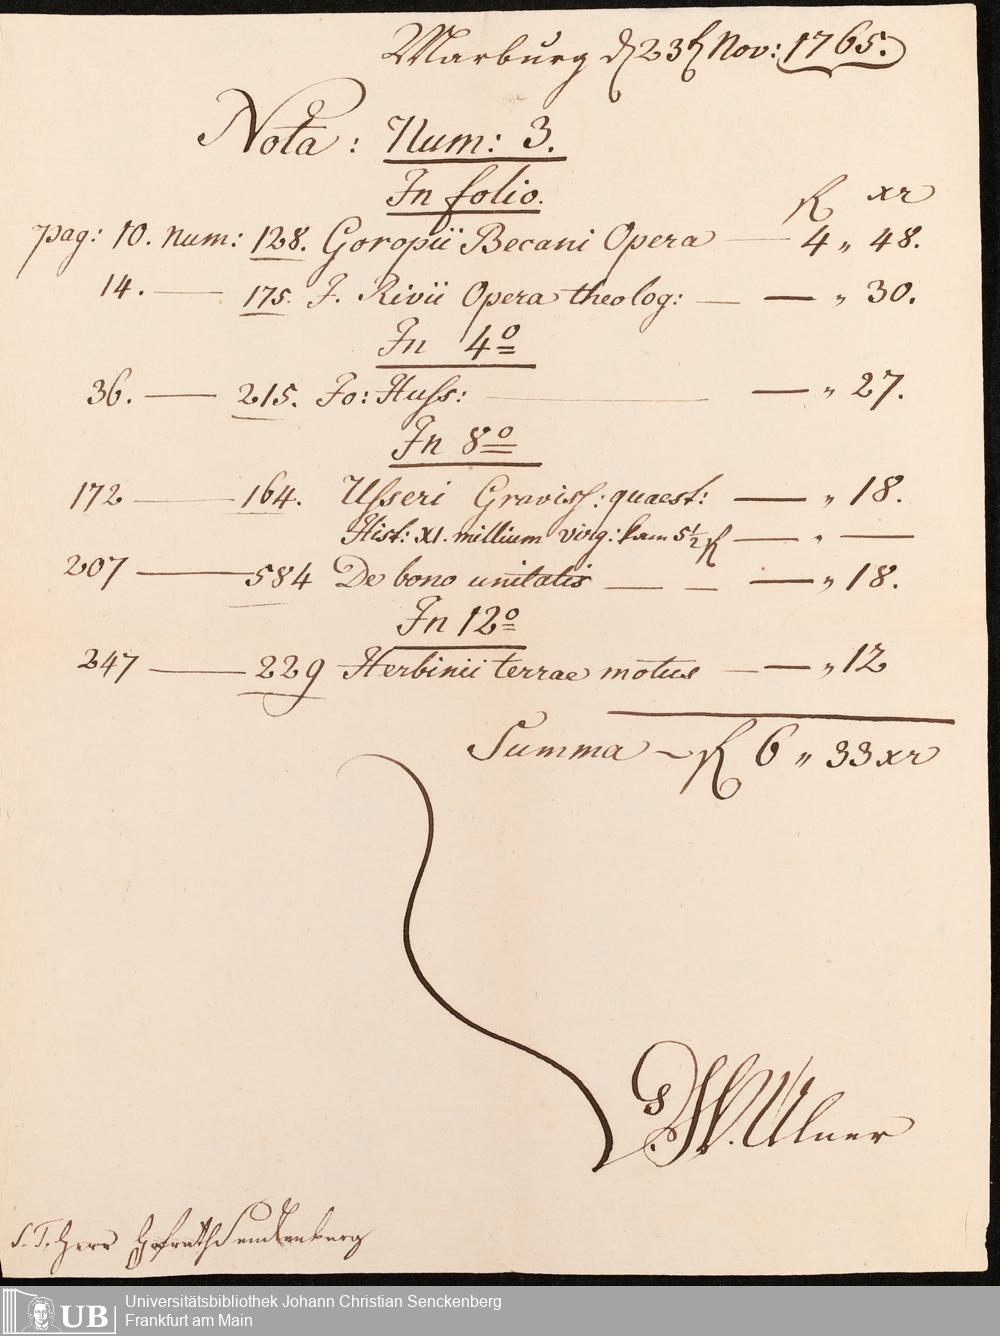 Marburg d 23t Nov: 1765.
Nota: Num: 3.
In folio.
fl xr
pag: 10. num: 128. Goropii Becani Opera — 4 „ 48.
14. — 175. J. Rivii Opera theolog: — — „ 30.
In 4o
36. — 215. Jo: Huss: — — „ 27.
In 8o
172 — 164. Usseri Graviss: quaest: — „ 18.
Hist: XI. millium virg: kam 5 1/2 fl — „ —
207 — 584 De bono unitatis — — — „ 18.
In 12o
247 — 229 Herbinii terrae motus — — „ 12
Summa ~ fl 6 „ 33 xr
W. Ulner
S. T. Herr Hofrath Senckenberg
UB
Universitätsbibliothek Johann Christian Senckenberg
Frankfurt am Main